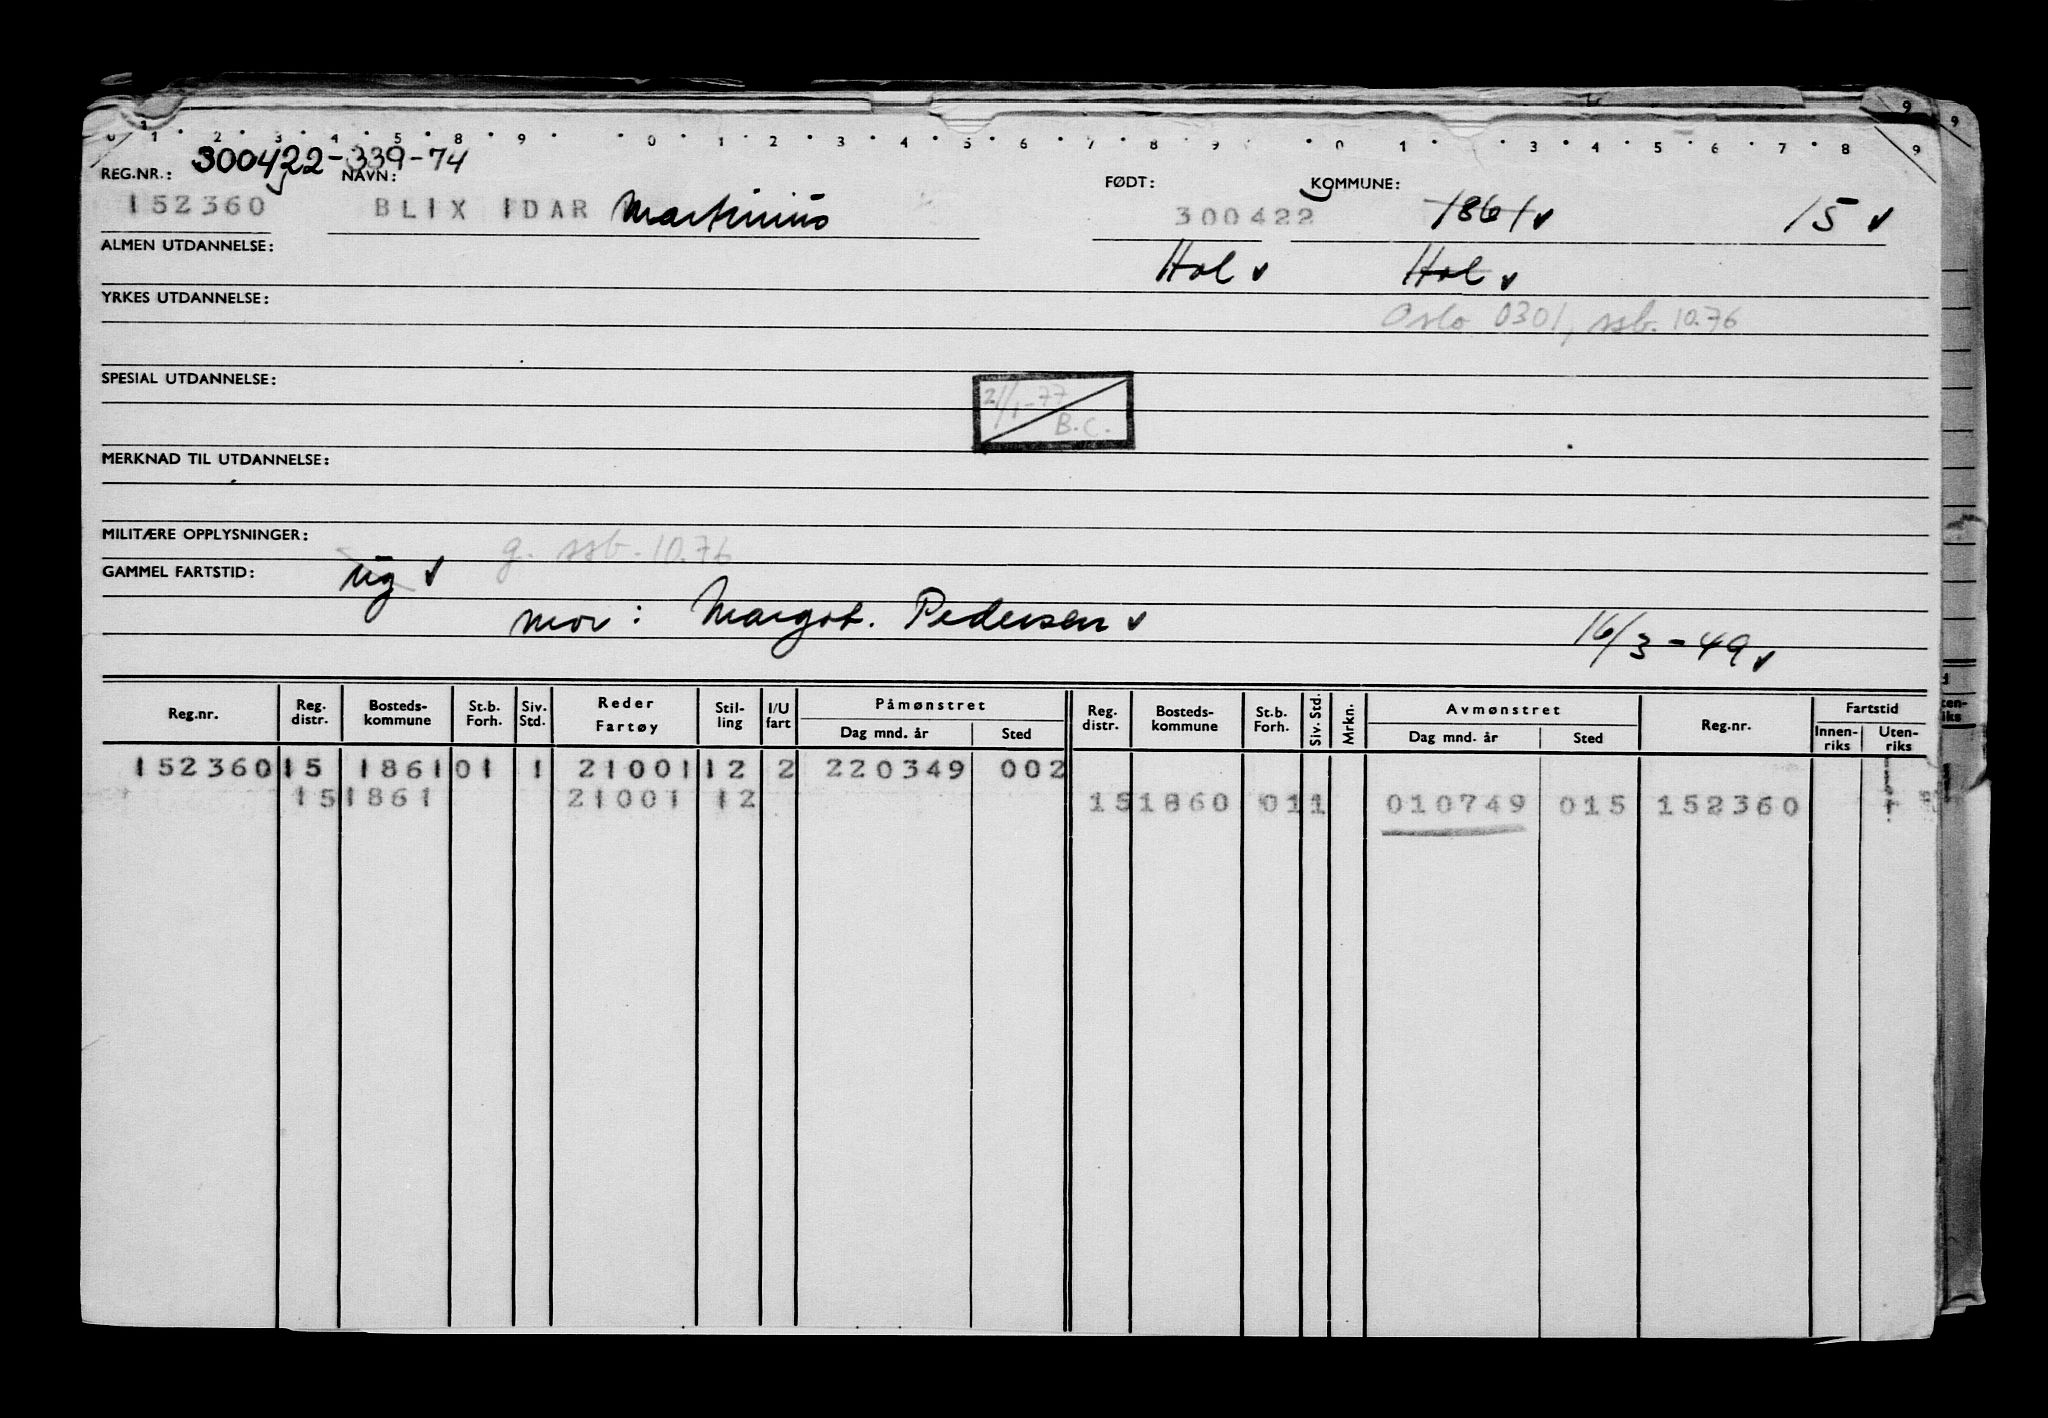 0 1 2 3 4 5 8 9 0 1 2 3 4 5 6 7 8 9 0 1 3 4 5 6 7 8 9
300422-339-74
REG.NR.: NAVN: FØDT: KOMMUNE:
152360 BLIX IDAR Martinius 300422 1861 v 15 v
ALMEN UTDANNELSE: Hol v Hol v
YRKES UTDANNELSE: Oslo 0301, ssb. 10.76
SPESIAL UTDANNELSE: 21/1-77 B.C.
MERKNAD TIL UTDANNELSE:
MILITÆRE OPPLYSNINGER: g. ssb. 10.76
GAMMEL FARTSTID: ug v
mor: Margot. Pedersen v 16/3-49 v
Reg.nr. Reg. distr. Bosteds-kommune St.b. Forh. Siv. Std. Reder Fartøy Stil-ling I/U fart Påmønstret Dag mnd. år Sted Reg. distr. Bosteds-kommune St.b. Forh. Siv. Std. Mrkn. Avmønstret Dag mnd. år Sted Reg.nr. Fartstid Innen-riks Uten-riks
152360 15 1861 01 1 21001 12 2 220349 002
15 1861 21001 12 15 1860 01 1 010749 015 152360